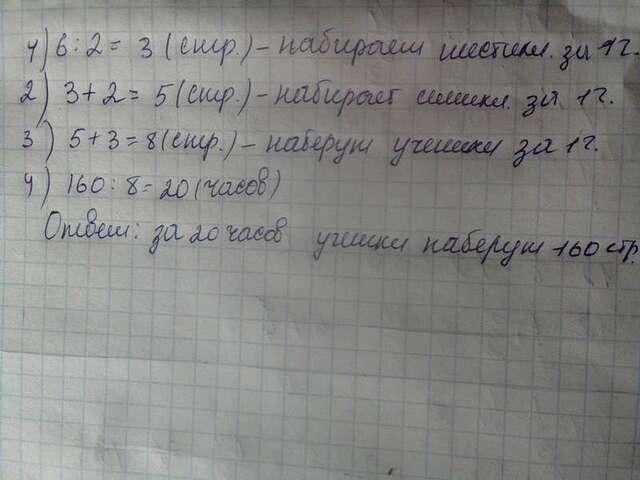 1) 6 : 2 = 3 (стр.) – набирает шестикл. за 1 ч.
2) 3 + 2 = 5 (стр.) – набирает за 1 ч.
3) 5 + 3 = 8 (стр.) – наберут ученики за 1 ч.
4) 160 : 8 = 20 (часов)
Ответ: за 20 часов учиники наберут 160 стр.